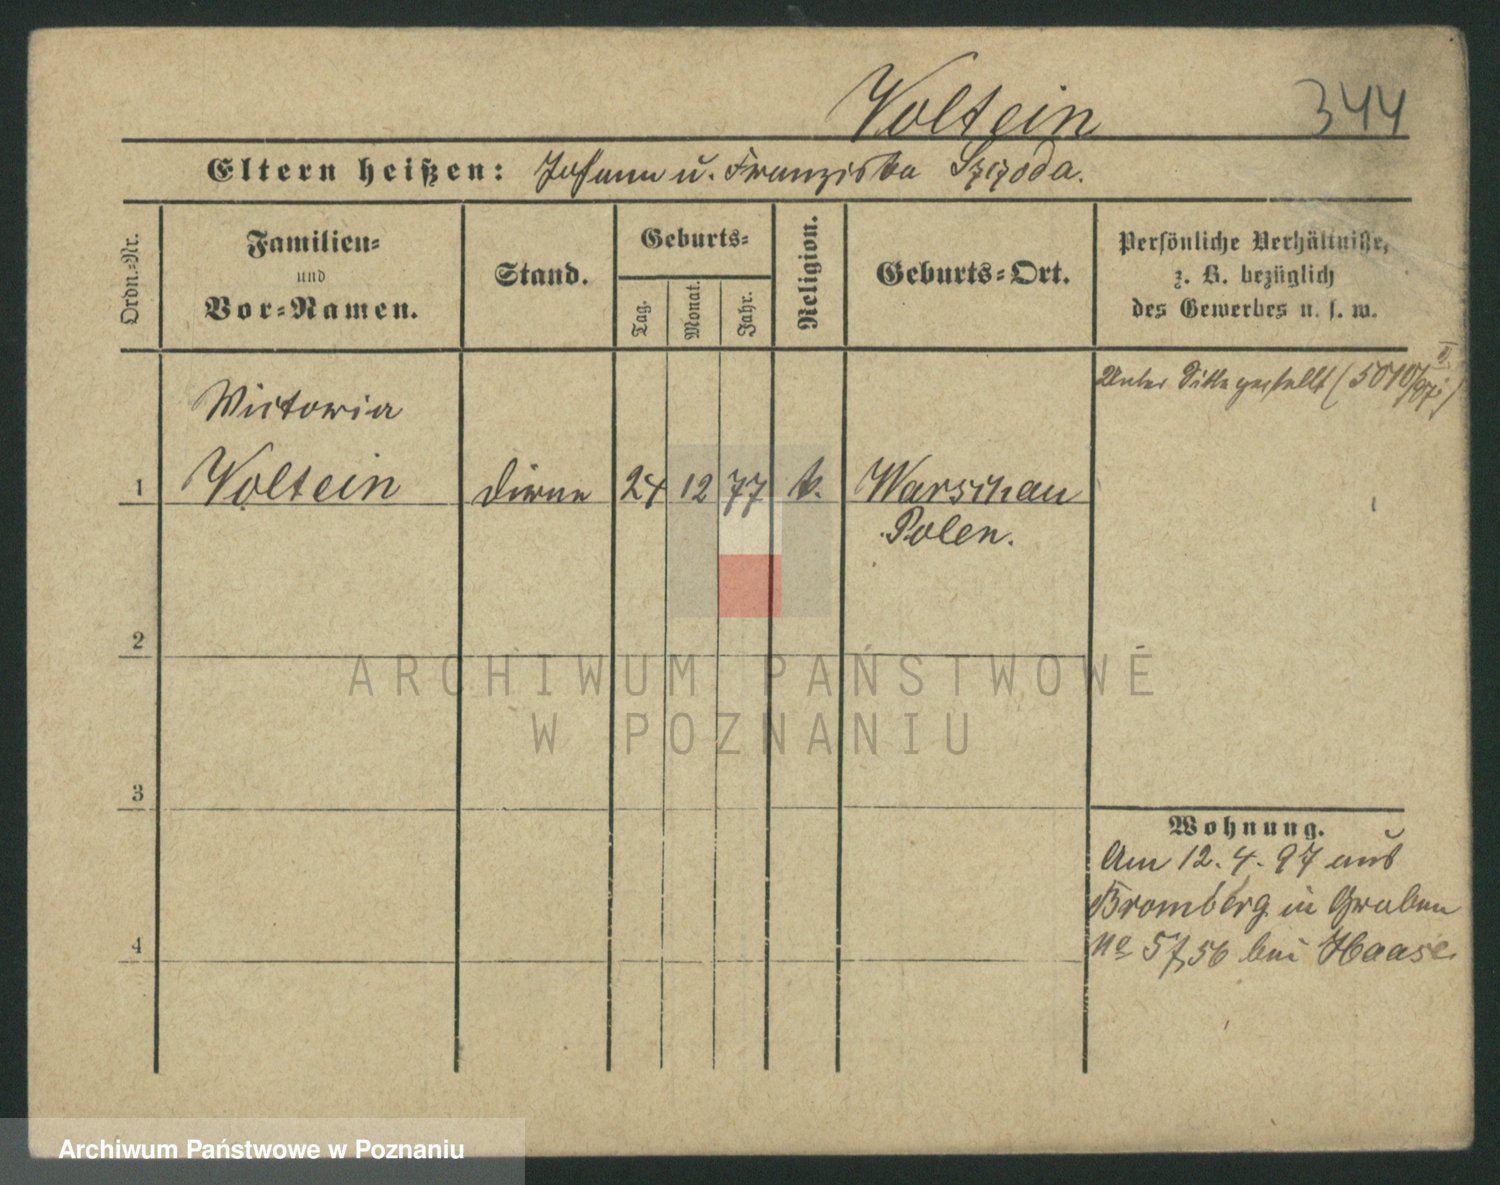 Voltein 344
Eltern heißen: Johann u. Franziska
Ordn.-Nr.
Familien-
und
Vor-Namen.
Stand.
Geburts-
Tag. Monat. Jahr.
Religion.
Geburts-Ort.
Persönliche Verhältnisse,
z. B. bezüglich
des Gewerbes u. s. w.
Unter Sitte gestellt (5010/97
Victoria
1 Voltein Dirne 24 12 77 k. Warschau
Polen.
2
3
4
ARCHIWUM PAŃSTWOWE
W POZNANIU
Wohnung.
Am 12. 4. 97 aus
Bromberg in Graben
No 5/56 bei Haase
Archiwum Państwowe w Poznaniu